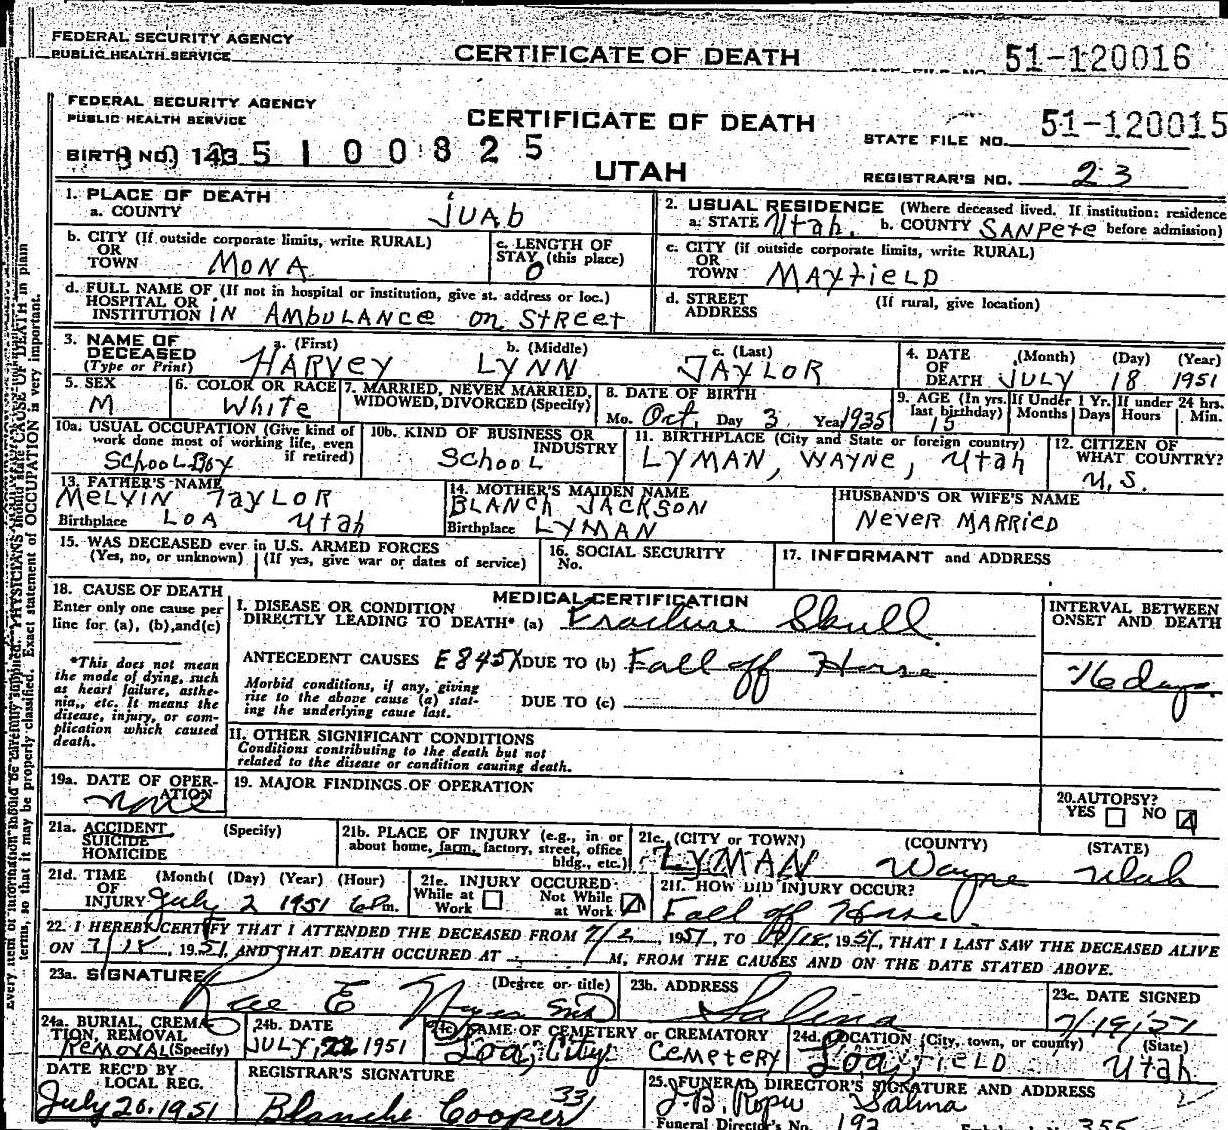 FEDERAL SECURITY AGENCY
PUBLIC HEALTH SERVICE
CERTIFICATE OF DEATH
51-120016
FEDERAL SECURITY AGENCY
PUBLIC HEALTH SERVICE
CERTIFICATE OF DEATH
STATE FILE NO. 51-120015
BIRTH NO. 143 5100825
UTAH
REGISTRAR'S NO. 23
1. PLACE OF DEATH
a. COUNTY JUAb
2. USUAL RESIDENCE (Where deceased lived. If institution: residence
a. STATE Utah. b. COUNTY SANPete before admission)
b. CITY (If outside corporate limits, write RURAL)
OR
TOWN MONA
c. LENGTH OF
STAY (this place)
0
c. CITY (if outside corporate limits, write RURAL)
OR
TOWN MAYfielD
d. FULL NAME OF (If not in hospital or institution, give st. address or loc.)
HOSPITAL OR
INSTITUTION iN AMbULANce on STREET
d. STREET (If rural, give location)
ADDRESS
3. NAME OF
DECEASED
(Type or Print)
a. (First) HARVEY
b. (Middle) LYNN
c. (Last) TAYLOR
4. DATE (Month) (Day) (Year)
OF
DEATH JULY 18 1951
5. SEX
M
6. COLOR OR RACE
White
7. MARRIED, NEVER MARRIED,
WIDOWED, DIVORCED (Specify)
8. DATE OF BIRTH
Mo. Oct. Day 3 Year 1935
9. AGE (In yrs. last birthday) 15
If Under 1 Yr. Months Days
If under 24 hrs. Hours Min.
10a. USUAL OCCUPATION (Give kind of
work done most of working life, even
if retired)
School Boy
10b. KIND OF BUSINESS OR
INDUSTRY
School
11. BIRTHPLACE (City and State or foreign country)
LYMAN, WAYNE, Utah
12. CITIZEN OF
WHAT COUNTRY?
U.S.
13. FATHER'S NAME
MELVIN TAYLOR
Birthplace LOA Utah
14. MOTHER'S MAIDEN NAME
BLANCH JACKSON
Birthplace LYMAN
HUSBAND'S OR WIFE'S NAME
NeveR MARRIED
15. WAS DECEASED ever in U.S. ARMED FORCES
(Yes, no, or unknown) (If yes, give war or dates of service)
16. SOCIAL SECURITY
No.
17. INFORMANT and ADDRESS
18. CAUSE OF DEATH
Enter only one cause per
line for (a), (b), and (c)
*This does not mean
the mode of dying, such
as heart failure, asthe-
nia,, etc. It means the
disease, injury, or com-
plication which caused
death.
MEDICAL CERTIFICATION
I. DISEASE OR CONDITION
DIRECTLY LEADING TO DEATH* (a) Fracture Skull
ANTECEDENT CAUSES E845X DUE TO (b) Fall off Horse
Morbid conditions, if any, giving
rise to the above cause (a) stat-
ing the underlying cause last.
DUE TO (c)
INTERVAL BETWEEN
ONSET AND DEATH
16 days
II. OTHER SIGNIFICANT CONDITIONS
Conditions contributing to the death but not
related to the disease or condition causing death.
19a. DATE OF OPER-
ATION
none
19. MAJOR FINDINGS OF OPERATION
20. AUTOPSY?
YES NO
21a. ACCIDENT (Specify)
SUICIDE
HOMICIDE
21b. PLACE OF INJURY (e.g., in or
about home, farm, factory, street, office
bldg., etc.)
21c. (CITY or TOWN) (COUNTY) (STATE)
LYMAN Wayne Utah
21d. TIME (Month) (Day) (Year) (Hour)
OF
INJURY July 2 1951 6 P.m.
21e. INJURY OCCURED
While at Work
Not While at Work
21f. HOW DID INJURY OCCUR?
Fall off Horse
22. I HEREBY CERTIFY THAT I ATTENDED THE DECEASED FROM 7/2, 1951, TO 7/18, 1951, THAT I LAST SAW THE DECEASED ALIVE
ON 7/18, 1951, AND THAT DEATH OCCURED AT M. FROM THE CAUSES AND ON THE DATE STATED ABOVE.
23a. SIGNATURE (Degree or title)
Rae E Noyes MD
23b. ADDRESS
Salina
23c. DATE SIGNED
7/19/51
24a. BURIAL, CREMA-
TION, REMOVAL
REMOVAL (Specify)
24b. DATE
JULY, 22 1951
24c. NAME OF CEMETERY or CREMATORY
Loa, City CEMETERY
24d. LOCATION (City, town, or county) (State)
Loa Utah
DATE REC'D BY
LOCAL REG.
July 20, 1951
REGISTRAR'S SIGNATURE
Blanche Cooper 331
25. FUNERAL DIRECTOR'S SIGNATURE AND ADDRESS
Salina
Funeral Director's No. 192 355
Every item of information should be carefully supplied. PHYSICIANS should state CAUSE OF DEATH in plain
terms, so that it may be properly classified. Exact statement of OCCUPATION is very important.